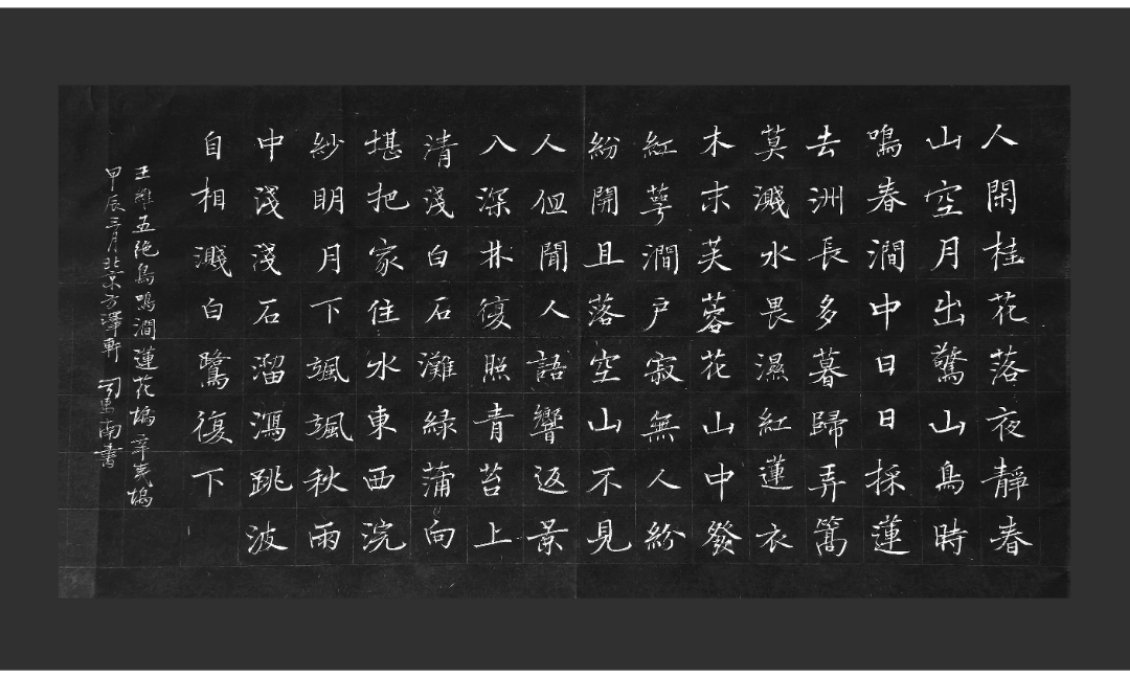 人閑桂花落夜靜春
山空月出驚山鳥時
鳴春澗中日日採蓮
去洲長多暮歸弄篙
莫濺水畏濕紅蓮衣
木末芙蓉花山中發
紅萼澗戶寂無人紛
紛開且落空山不見
人但聞人語響返景
入深林復照青苔上
清淺白石灘綠蒲向
堪把家住水東西浣
紗明月下颯颯秋雨
中淺淺石溜瀉跳波
自相濺白鷺復下
王維五絕鳥鳴澗蓮花塢辛夷塢
甲辰三月北京方澤軒 司東南書